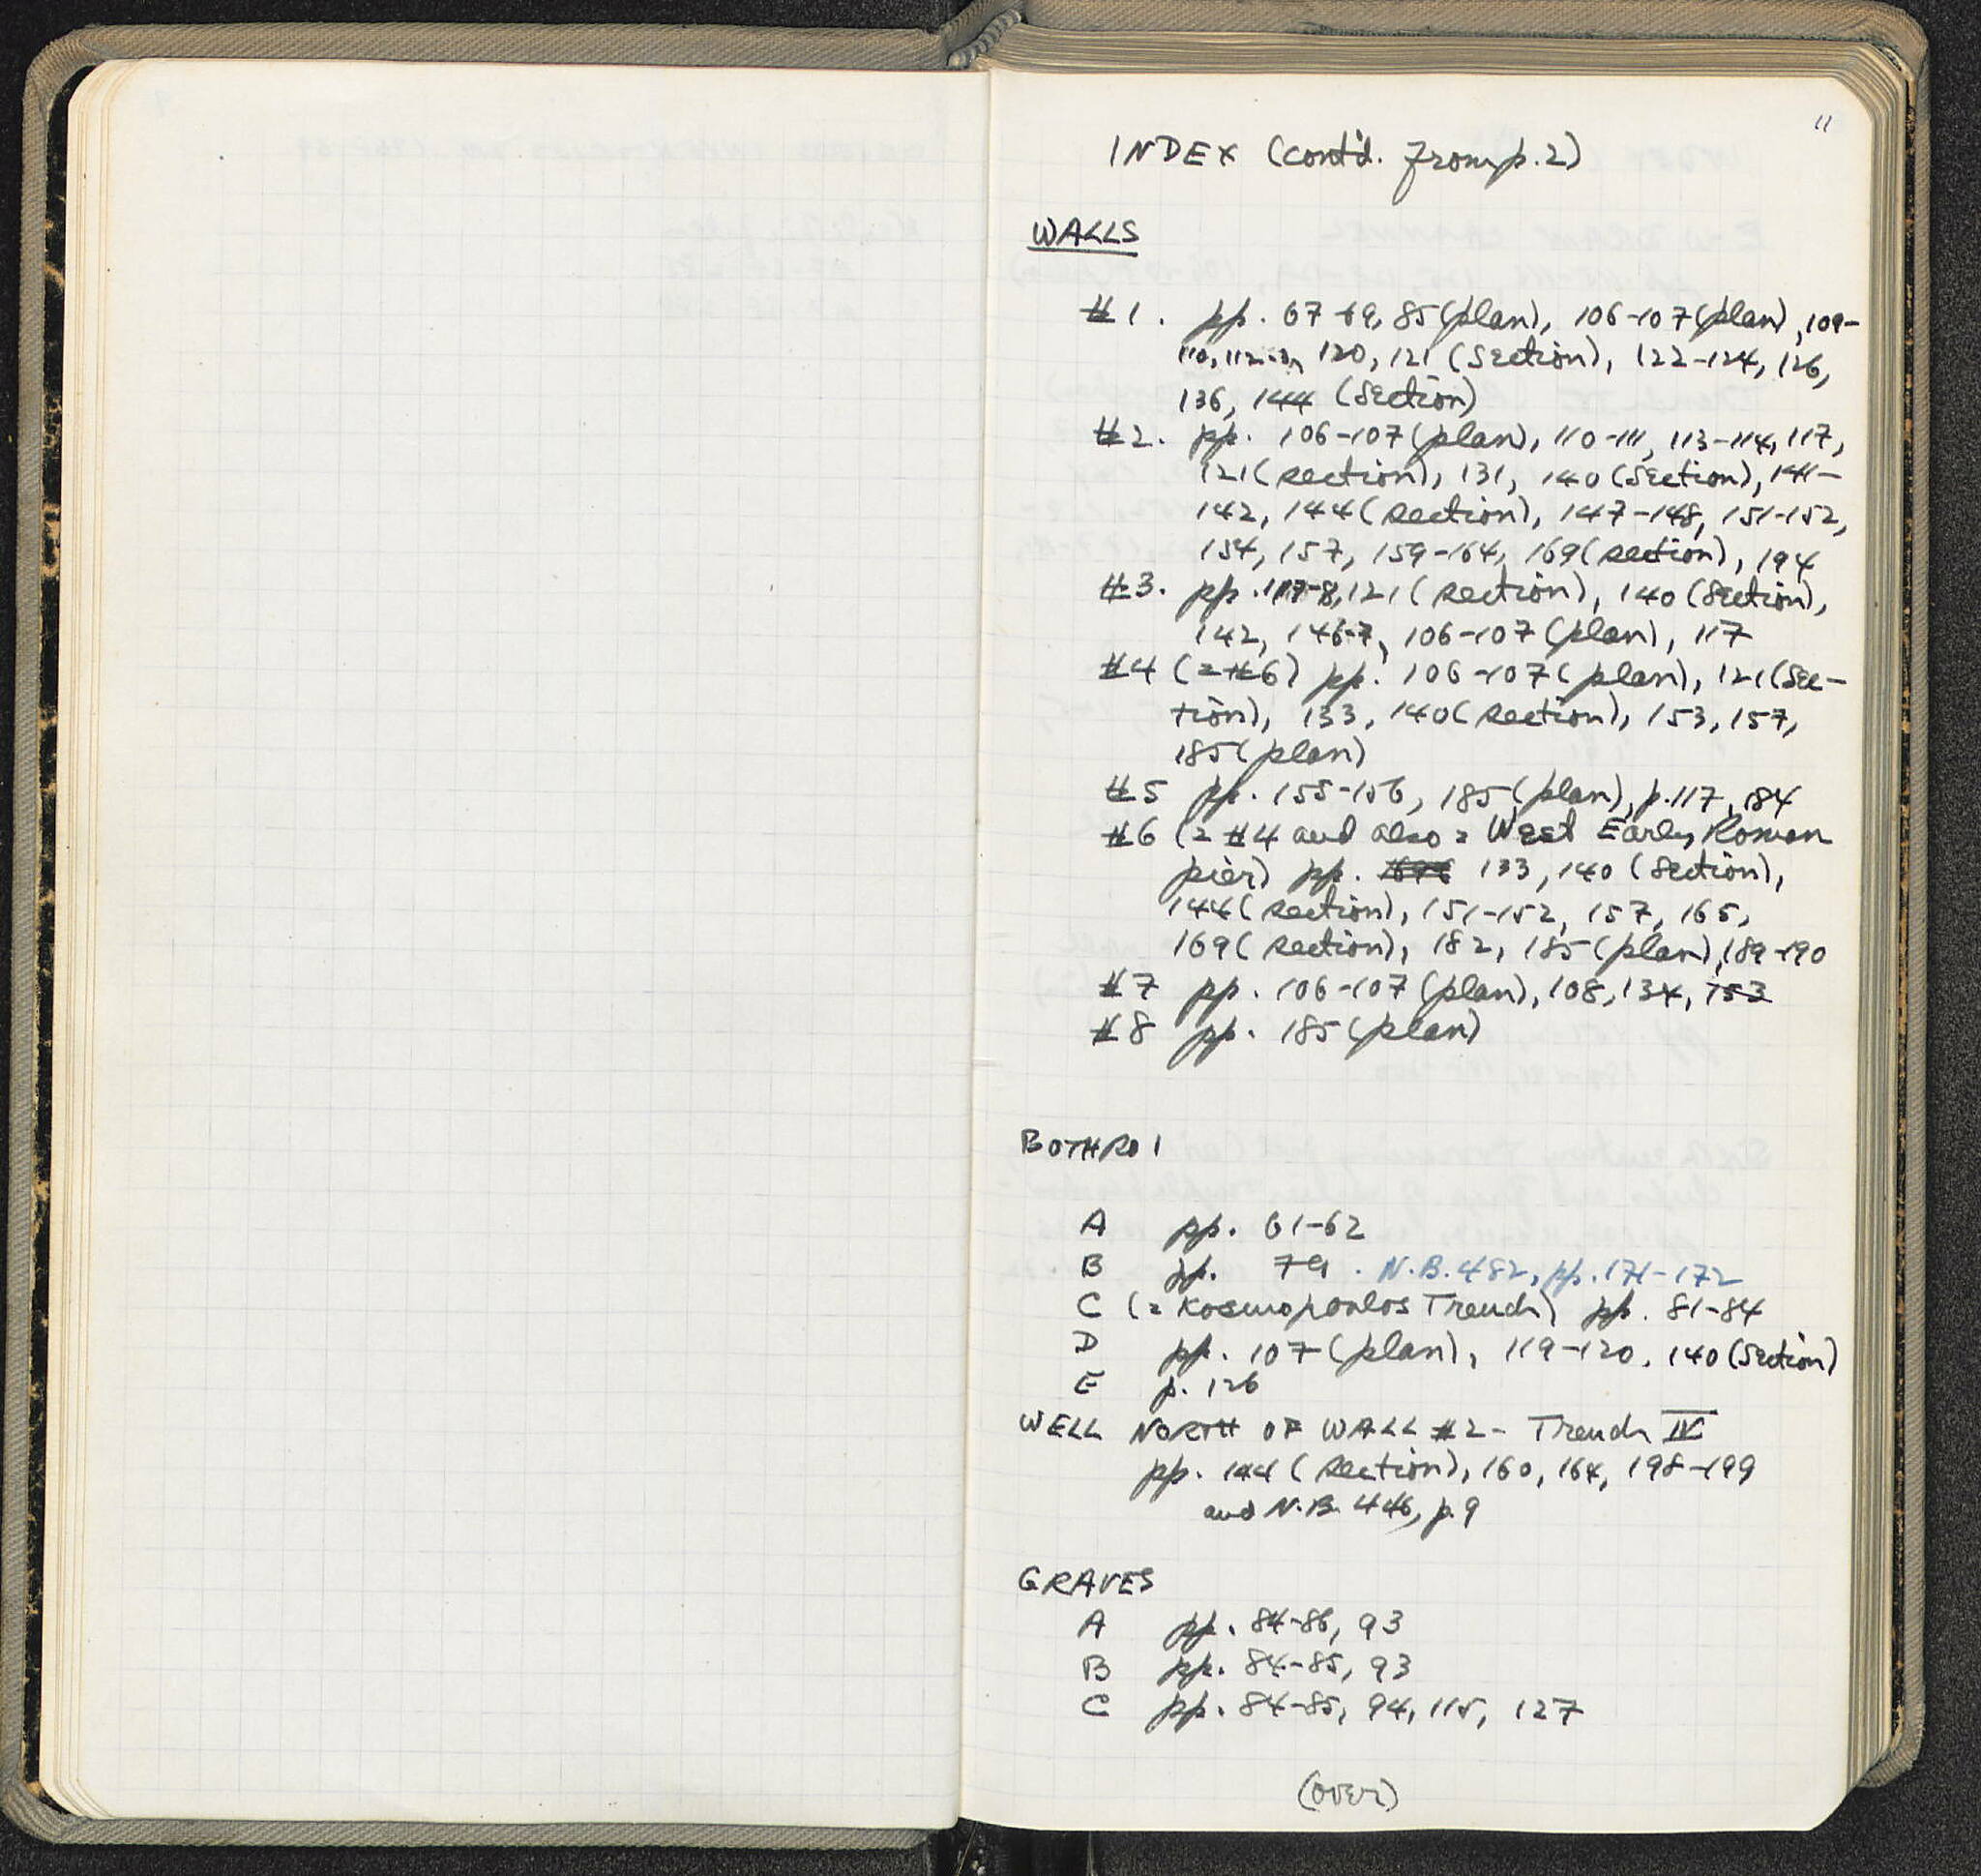 11
INDEX (cont'd. from p. 2)
WALLS
#1. pp. 67-69, 85 (plan), 106-107 (plan), 109-
110, 112-3, 120, 121 (section), 122-124, 126,
136, 144 (section)
#2. pp. 106-107 (plan), 110-111, 113-114, 117,
121 (section), 131, 140 (section), 141-
142, 144 (section), 147-148, 151-152,
154, 157, 159-164, 169 (section), 194
#3. pp. 117-8, 121 (section), 140 (section),
142, 146-7, 106-107 (plan), 117
#4 (=#6) pp. 106-107 (plan), 121 (sec-
tion), 133, 140 (section), 153, 157,
185 (plan)
#5 pp. 155-156, 185 (plan), p. 117, 184
#6 (= #4 and also = West Early Roman
pier) pp. 133, 140 (section),
144 (section), 151-152, 157, 165,
169 (section), 182, 185 (plan), 189-190
#7 pp. 106-107 (plan), 108, 134, 153
#8 pp. 185 (plan)
BOTHROI
A pp. 61-62
B pp. 79. N.B. 482, pp. 171-172
C (= Kosmopoulos Trench) pp. 81-84
D pp. 107 (plan), 119-120, 140 (section)
E p. 126
WELL NORTH OF WALL #2 - Trench IV
pp. 144 (section), 160, 164, 198-199
and N.B. 446, p. 9
GRAVES
A pp. 84-86, 93
B pp. 84-85, 93
C pp. 84-85, 94, 115, 127
(over)